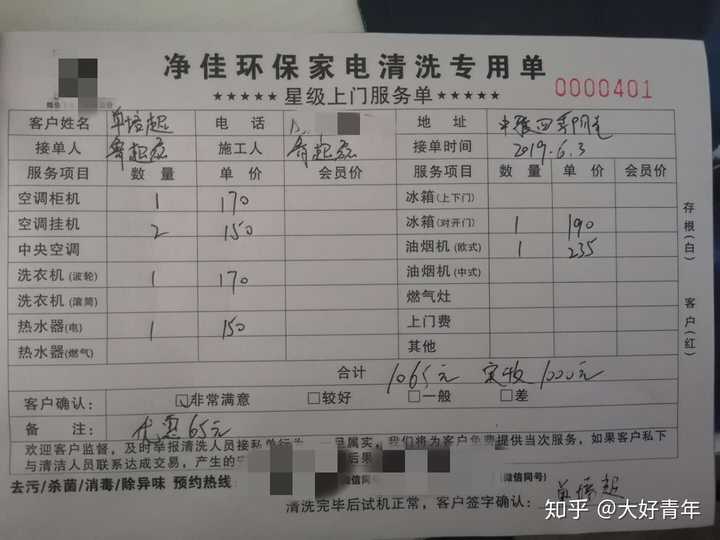 净佳环保家电清洗专用单
★★★★★ 星级上门服务单 ★★★★★
0000401
客户姓名 单培起 电 话 地 址 中骏四季阳光
接单人 施工人 接单时间 2019.6.3
服务项目 数 量 单 价 会员价 服务项目 数 量 单 价 会员价
空调柜机 1 170 冰箱(上下门)
空调挂机 2 150 冰箱(对开门) 1 190
中央空调 油烟机(欧式) 1 235
洗衣机(波轮) 1 170 油烟机(中式)
洗衣机(滚筒) 燃气灶
热水器(电) 1 150 上门费
热水器(燃气) 其他
合计 1065元 实收1000元
客户确认: ☑非常满意 □较好 □一般 □差
备 注: 优惠65元
欢迎客户监督,及时举报清洗人员接私单行为,一旦属实,我们将为客户免费提供当次服务,如果客户私下
与清洁人员联系达成交易,产生的后果
去污/杀菌/消毒/除异味 预约热线 微信同号) (微信同号)
清洗完毕后试机正常,客户签字确认: 单培起
存根(白) 客户(红)
知乎 @大好青年